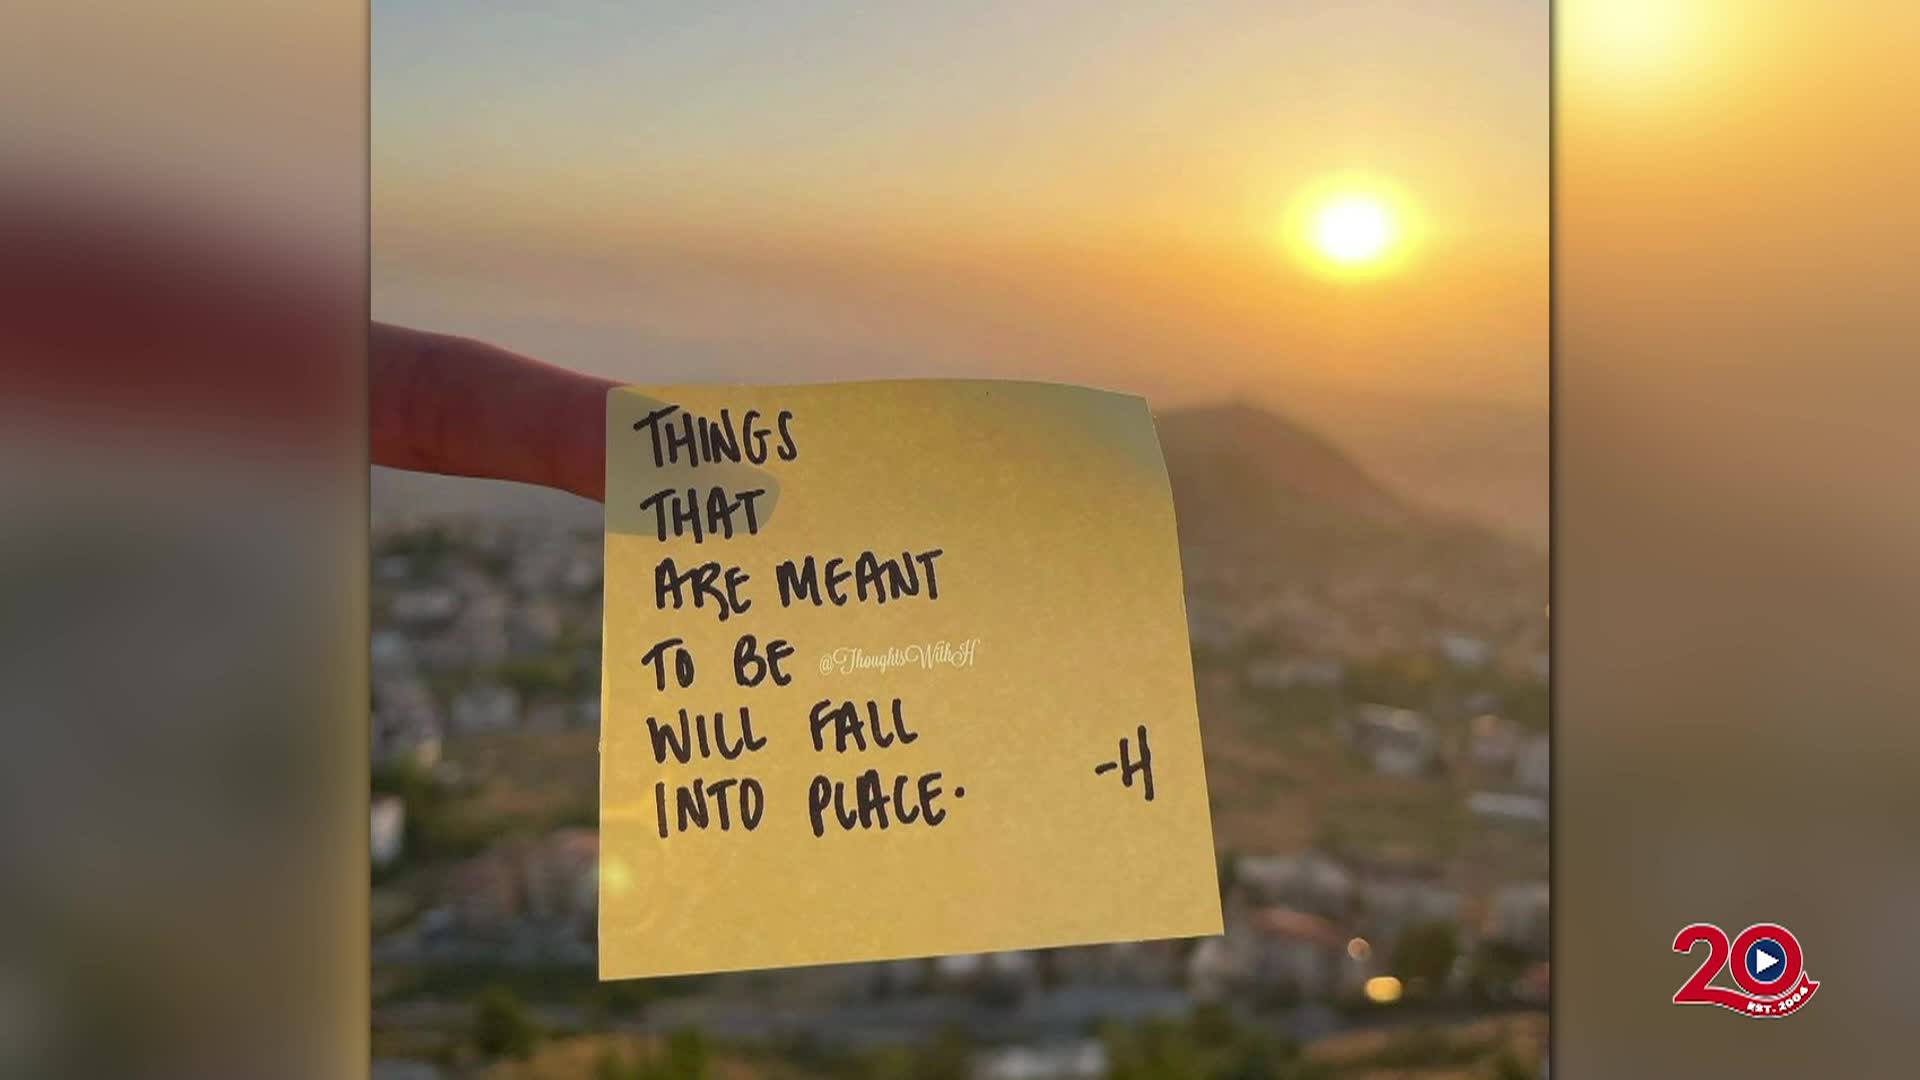 THINGS
THAT
ARE MEANT
TO BE
@ThoughtsWithH
WILL FALL
INTO PLACE.
-H
20
EST. 2004